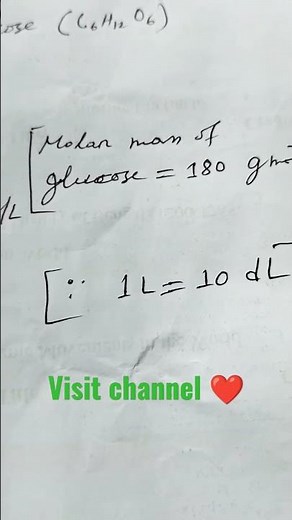 ose (C₆H₁₂O₆)
Molar mass of
/L
glucose = 180 gmo
[∵ 1L = 10 dL
Visit channel ❤️